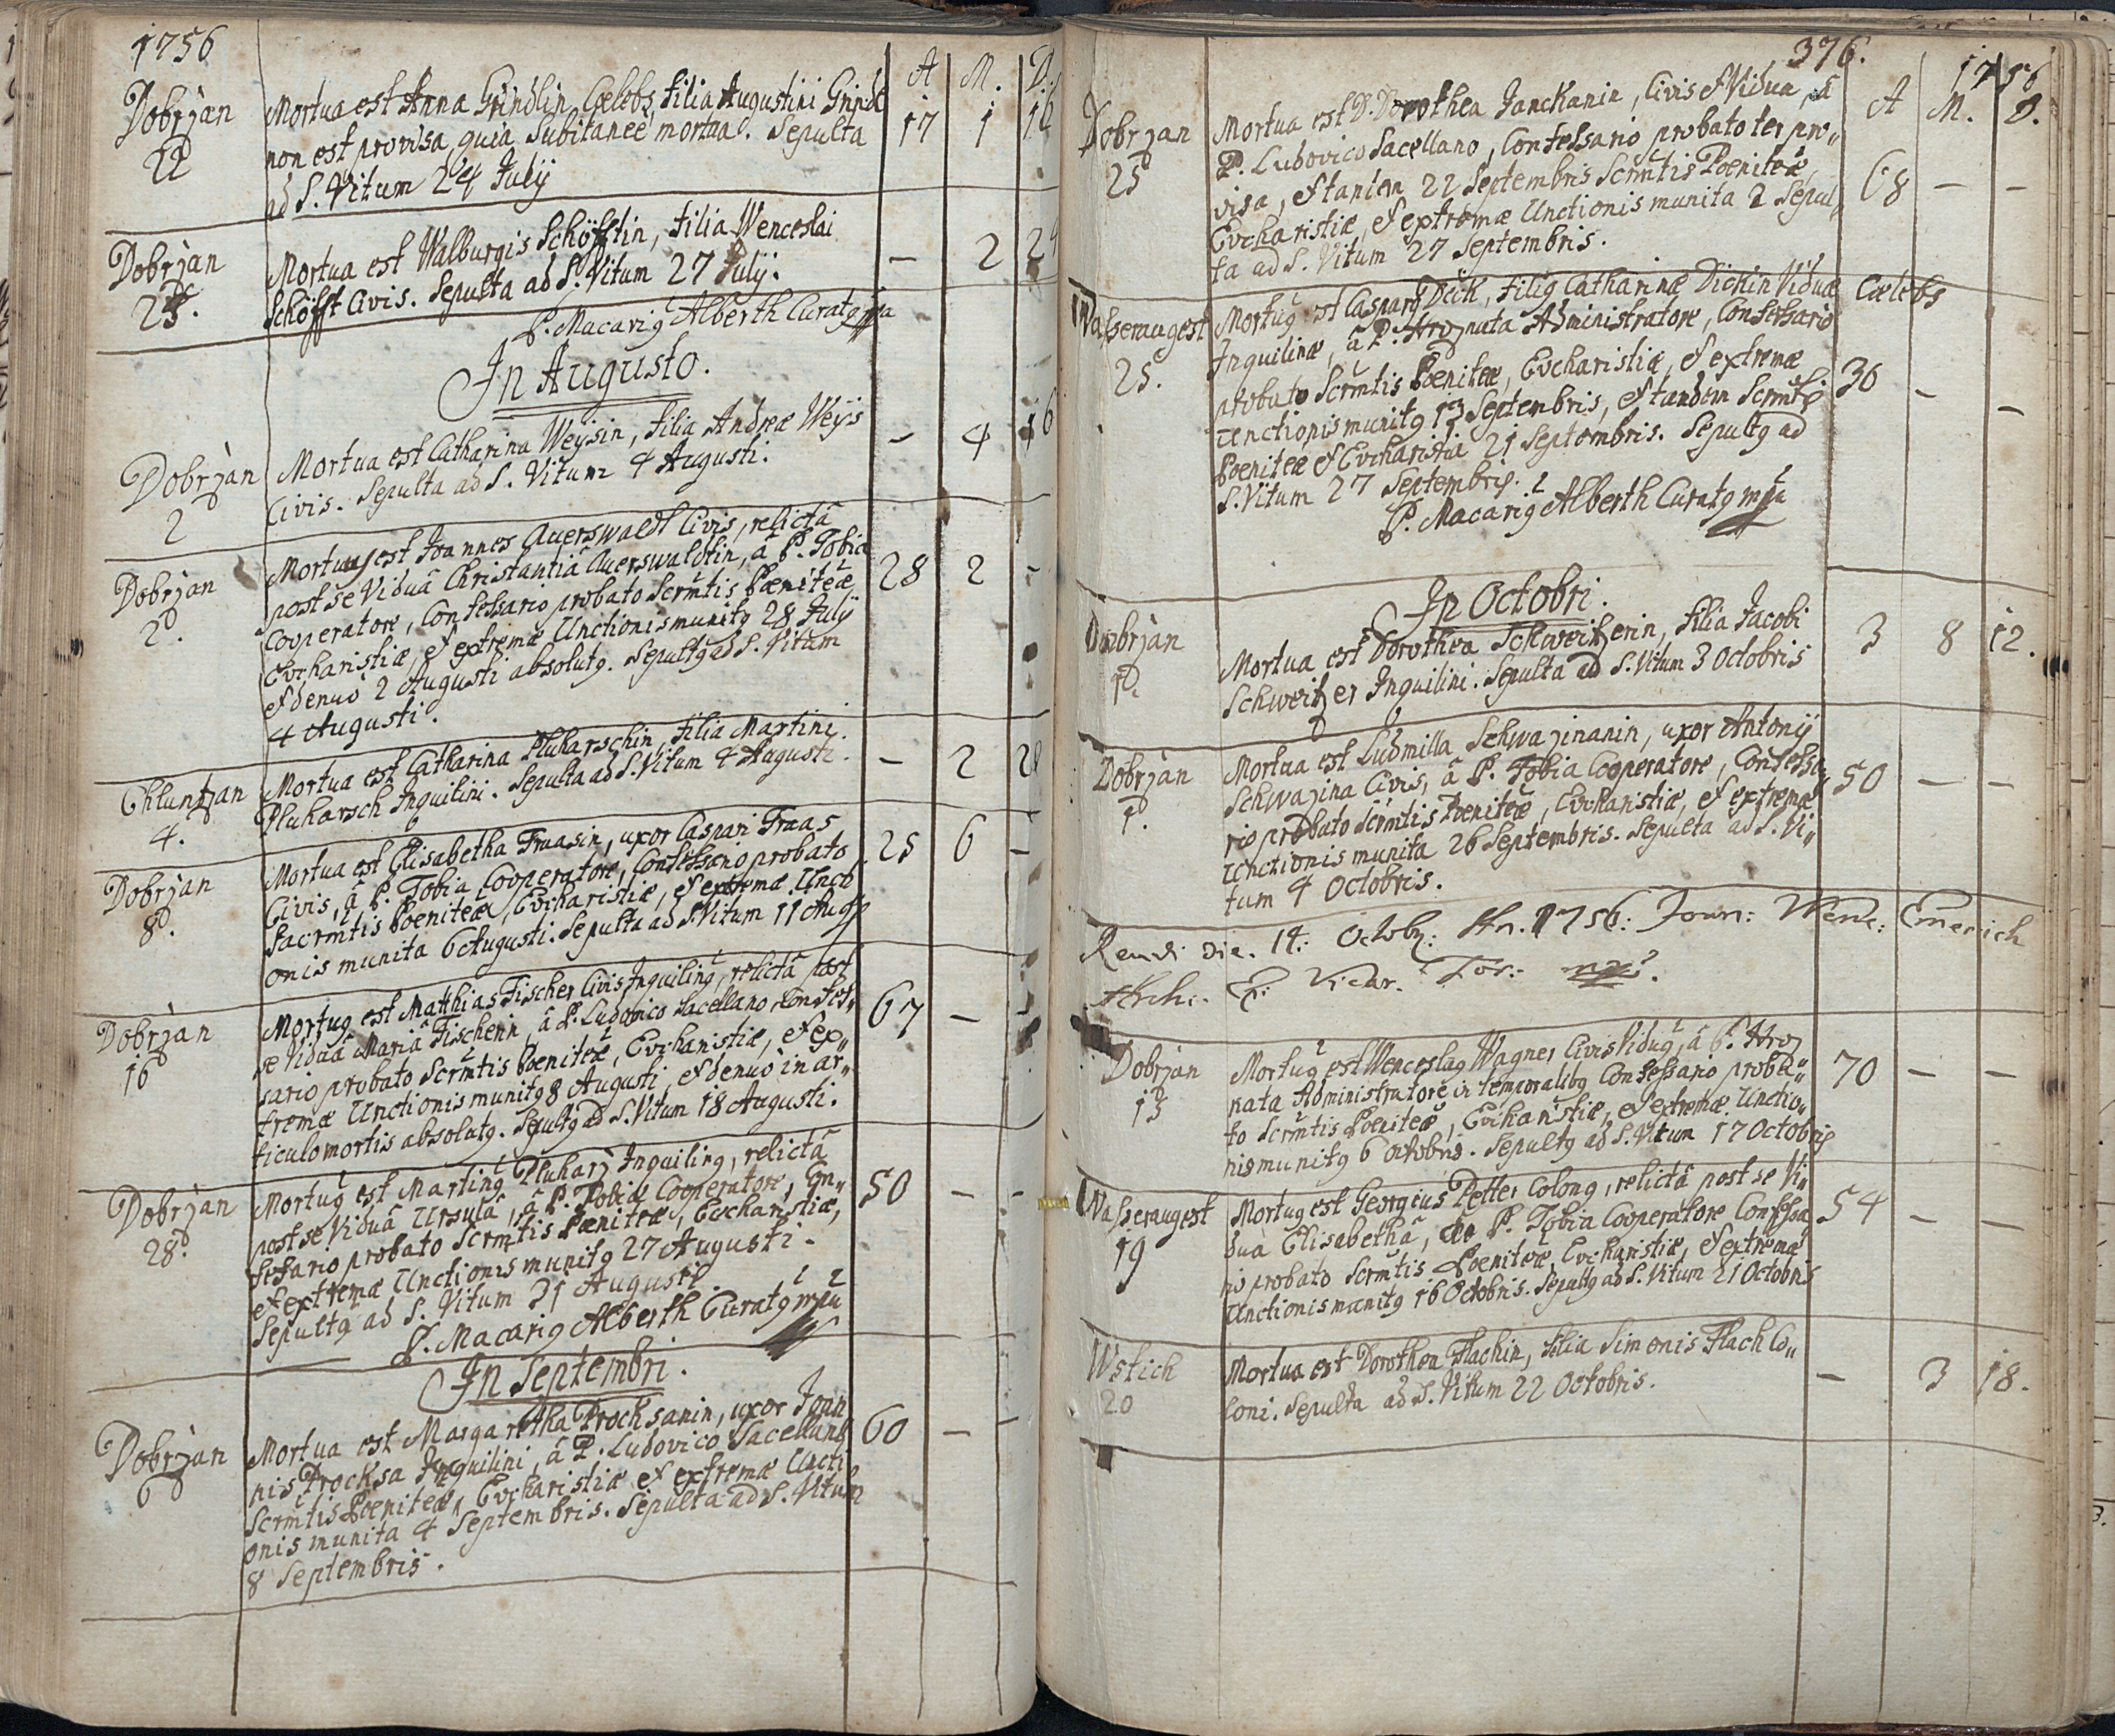 1756
A M. D.
Dobrzan Mortua est Anna Grindlin, Cælebs, filia Augustini Grindl 17 1 16
22 non est provisa, quia subitaneè mortua. Sepulta
ad S. Vitum 24 July
Dobrzan Mortua est Walburgis Schöfftin, filia Wenceslai
25. Schöfft Civis. Sepulta ad S. Vitum 27 July. – 2
P. Macari9 Alberth Curat9 mpa
In Augusto.
Dobrzan Mortua est Catharina Weÿsin, filia Andreæ Weÿs – 4 16
2 Civis. Sepulta ad S. Vitum 4 Augusti.
Dobrzan Mortuus est Joannes Auerswaldt Civis, relictâ
2d. post se Viduâ Christantiâ Auerswaldtin, â P. Tobia 28 2 –
Cooperatore, Confessario probato Scrmtis Pœniteæ
Eucharistiæ, et extremæ Unctionis munit9 28 July
et denuò 2 Augusti absolut9. Sepult9 ad S. Vitum
4 Augusti.
Chluntzan Mortua est Catharina Pluharschin, filia Martini
4. Pluharsch Inquilini. Sepulta ad S. Vitum 4 Augusti. – 2
6
Dobrzan Mortua est Elisabetha Fraasin, uxor Caspari Fraas
8d. Civis, â P. Tobia Cooperatore, Confessario probato 25 6 –
Sacrmtis Pœniteæ, Eucharistiæ, et extremæ Uncti
onis munita 6 Augusti. Sepulta ad S. Vitum 11 Aug
Dobrzan Mortu9 est Matthias Fischer Civis Inquilin9, relictâ post
16 se Viduâ Mariâ Fischerin, â P. Ludovico Sacellano, Confes„ 67 –
sario probato Scrmtis Pœniteæ, Eucharistiæ, et ex„
tremæ Unctionis munit9 8 Augusti, et denuò in ar„
ticulo mortis absolut9. Sepult9 ad S. Vitum 18 Augusti.
Dobrzan Mortu9 est Martin9 Pluharz Inquilin9, relictâ
28d. post se Viduâ Ursulâ, â P. Tobiâ Cooperatore, Con„ 50 – –
fessario probato Scrmtis Pœniteæ, Eucharistiæ,
et extremæ Unctionis munit9 27 Augusti.
Sepult9 ad S. Vitum 31 Augusti.
P. Macari9 Alberth Curat9 mpa
In Septembri.
Dobrzan Mortua est Margaretha Procksanin, uxor Joan
6 nis Procksa Inquilini, â P. Ludovico Sacellano 60 – –
Scrmtis Pœniteæ, Eucharistiæ et extremæ Uncti
onis munita 4 Septembris. Sepulta ad S. Vitum
8 Septembris.
376.
1756
A M. D.
Dobrzan Mortua est D. Dorothea Janckanin, Civis et Vidua, â
25d P. Ludovico Sacellano, Confessario probato ter pro„
visa, et tandem 22 Septembris Scrmtis Pœniteæ, 68 – –
Eucharistiæ, et extremæ Unctionis munita 2 Sepul„
ta ad S. Vitum 27 Septembris.
Wasseraugest Mortu9 est Caspar9 Dick, fili9 Catharinæ Dickin Viduæ Cælebs
25. Inquilinæ, â P. Hroznata Administratore, Confessario
probato Scrmtis Pœniteæ, Eucharistiæ, et extremæ 36 – –
Unctionis munit9 13 Septembris, et tandem Scrmtis
Pœniteæ et Eucharistiæ 21 Septembris. Sepult9 ad
S. Vitum 27 Septembris.
P. Macari9 Alberth Curat9 mpa
In Octobri.
Dobrzan Mortua est Dorothea Schweitzerin, filia Jacobi 3 8 12.
1d. Schweitzer Inquilini. Sepulta ad S. Vitum 3 Octobris
Dobrzan Mortua est Ludmilla Schwazinanin, uxor Antonij
1. Schwazina Civis, â P. Tobia Cooperatore, Confessa„ 50 – –
rio probato Scrmtis Pœniteæ, Eucharistiæ, et extremæ
Unctionis munita 26 Septembris. Sepulta ad S. Vi„
tum 4 Octobris.
Revidi die. 14: Octob: An. 1756: Joan: Wenc: Emerich
Arch: E: Vicar. For: mp.
Dobrzan Mortu9 est Wenceslaus Wagner Civis Vidu9, â P. Hroz
13 nata Administratore in temporalib9 Confessario proba„ 70 – –
to Scrmtis Pœniteæ, Eucharistiæ, et extremæ Unctio„
nis munit9 6 Octobris. Sepult9 ad S. Vitum 17 Octobris
Wasseraugest Mortu9 est Georgius Petter Colon9, relictâ post se Vi„
19 duâ Elisabethâ, P. Tobia Cooperatore Confessa 54 – –
rio probato Scrmtis Pœniteæ, Eucharistiæ, et extremæ
Unctionis munit9 16 Octobris. Sepult9 ad S. Vitum 21 Octobris
Wstich Mortua est Dorothea Flachin, filia Simonis Flach Co„
20 loni. Sepulta ad S. Vitum 22 Octobris. – 3 18.